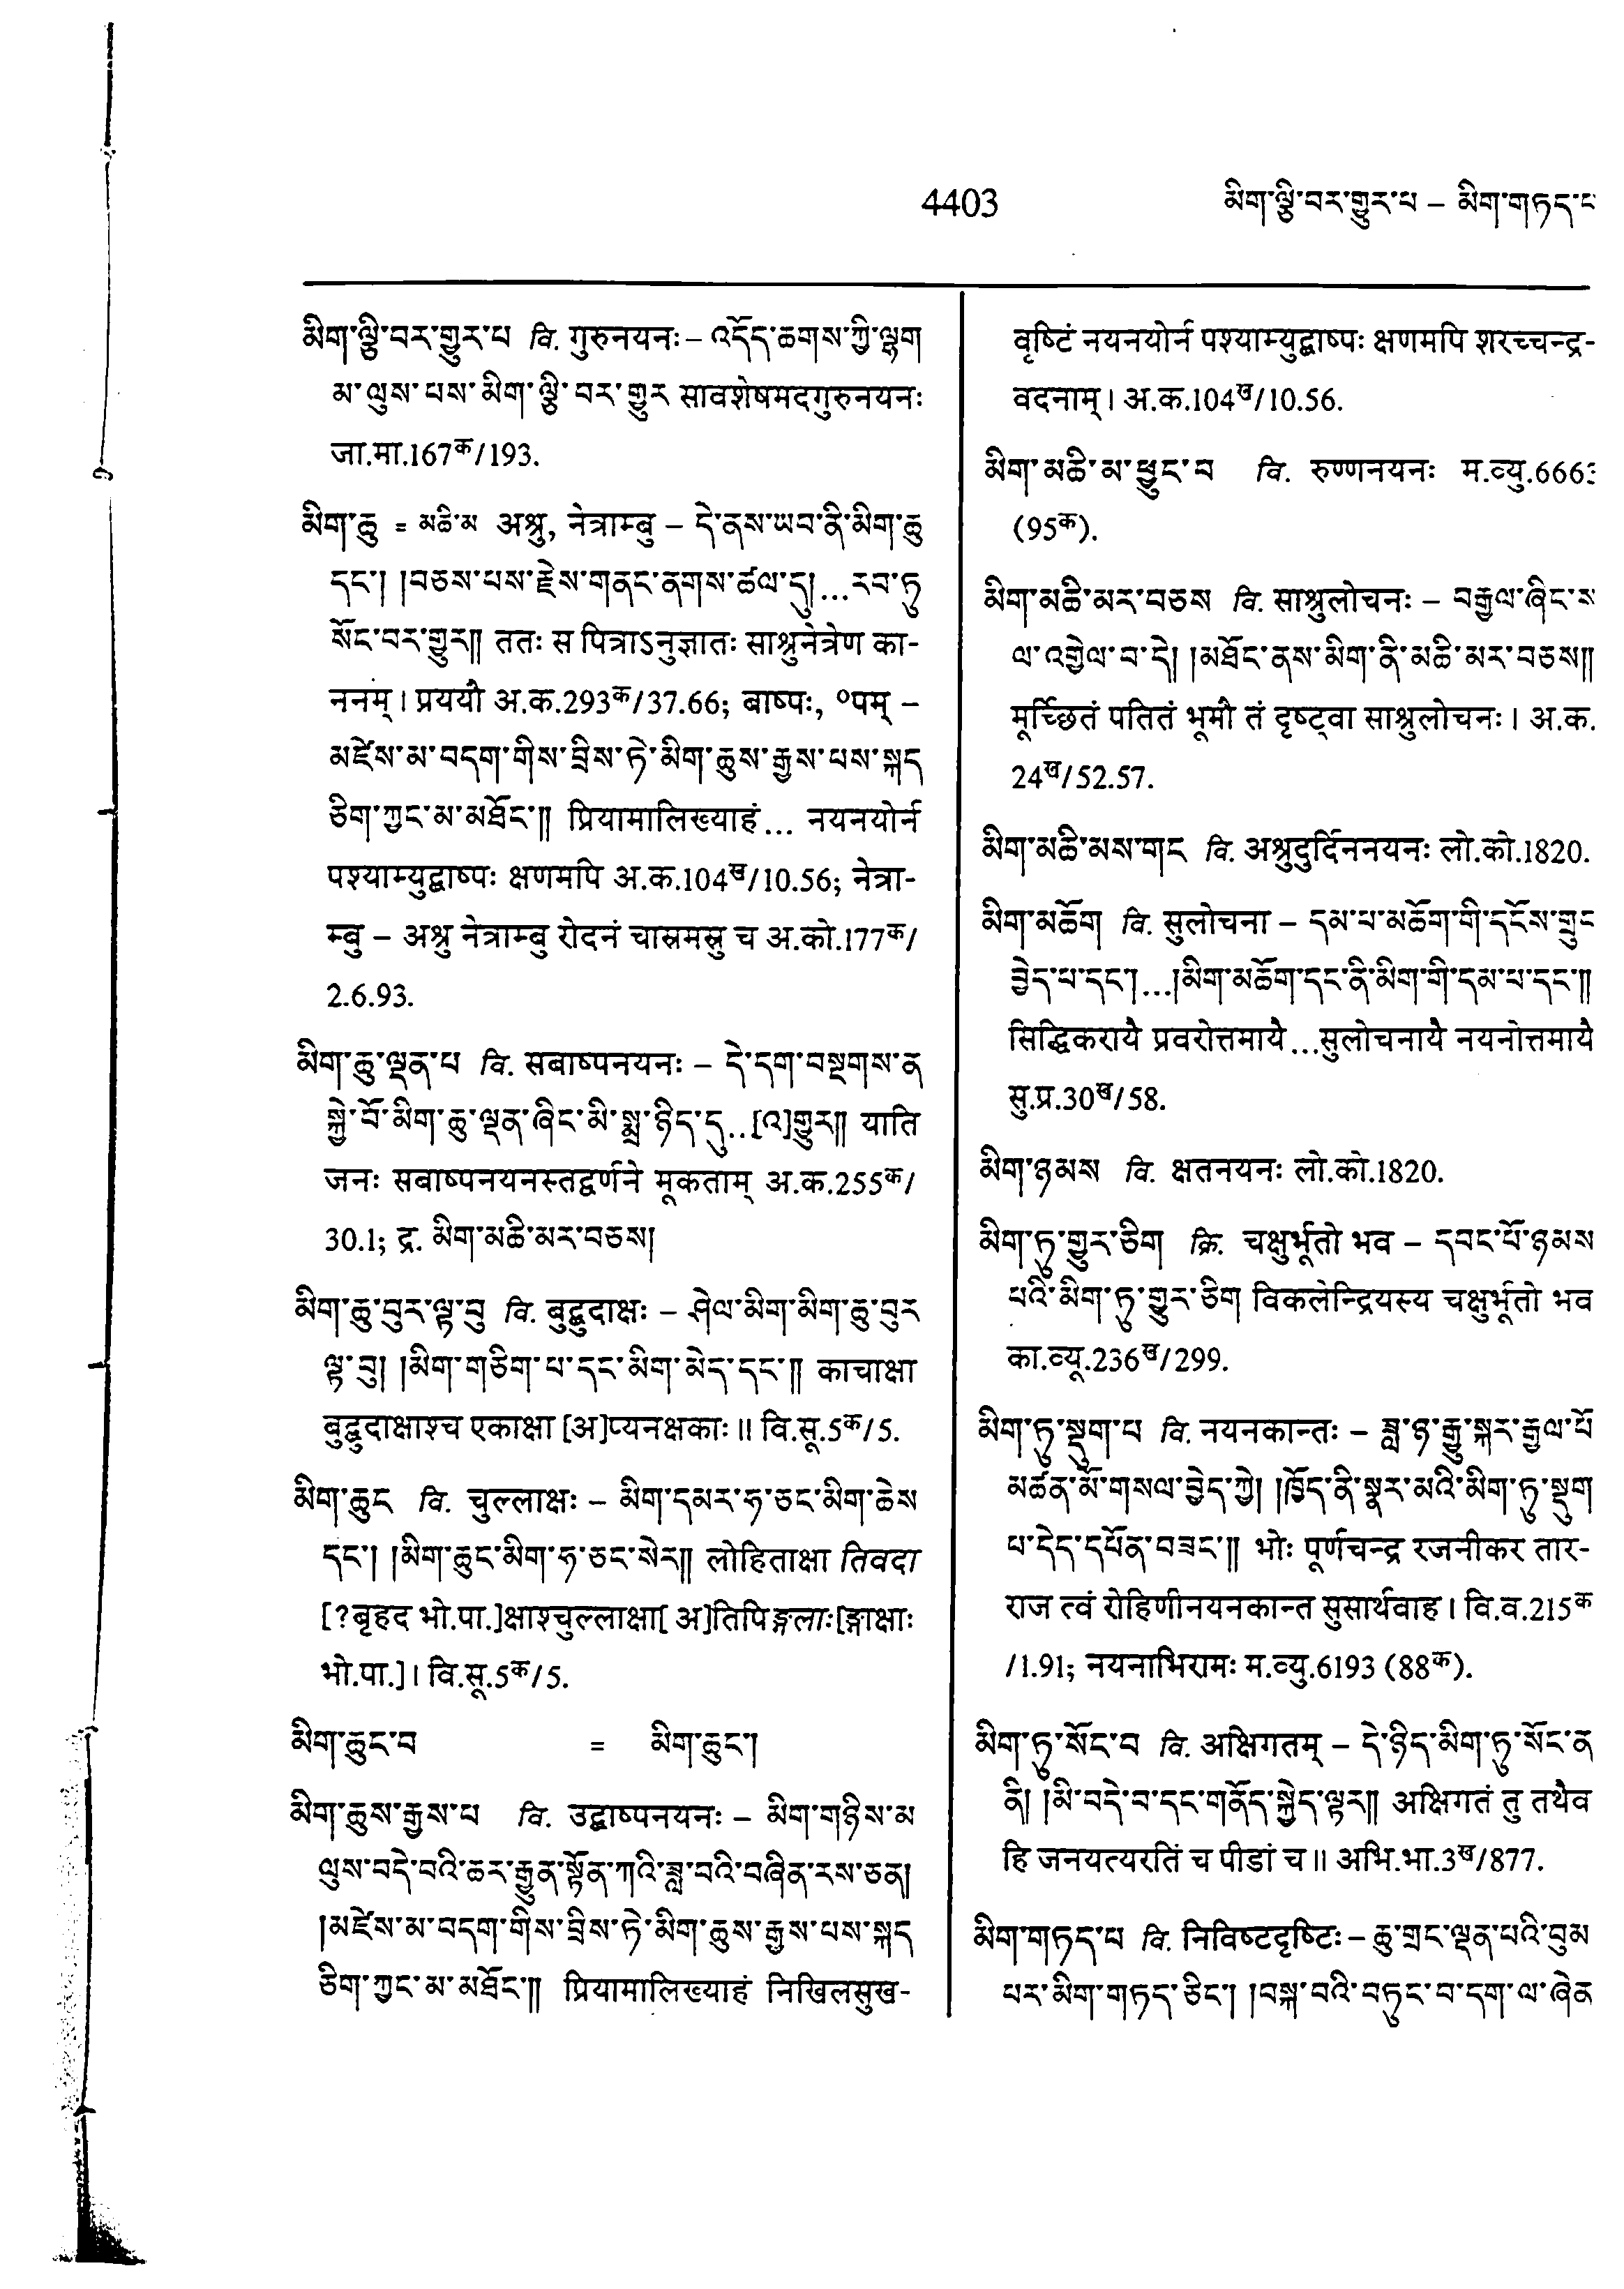 4403
མིག་ལྕི་བར་གྱུར་པ – མིག་གཏད་པ
མིག་ལྕི་བར་གྱུར་པ वि. गुरुनयनः – འདོད་ཆགས་ཀྱི་ལྷག
མ་ལུས་པས་མིག་ལྕི་བར་གྱུར सावशेषमदगुरुनयनः
जा.मा.167क/193.
མིག་ཆུ = མཆི་མ अश्रु, नेत्राम्बु – དེ་ནས་ཡབ་ནི་མིག་ཆུ
དང་། །བཅས་པས་རྗེས་གནང་ནགས་ཚལ་དུ། ...རབ་ཏུ
སོང་བར་གྱུར༎ ततः स पित्राऽनुज्ञातः साश्रुनेत्रेण का-
ननम्। प्रययौ अ.क.293क/37.66; बाष्पः, ॰पम् –
མཛེས་མ་བདག་གིས་བྲིས་ཏེ་མིག་ཆུས་རྒྱས་པས་སྐད
ཅིག་ཀྱང་མ་མཐོང་༎ प्रियामालिख्याहं... नयनयोर्न
पश्याम्युद्बाष्पः क्षणमपि अ.क.104ख/10.56; नेत्रा-
म्बु – अश्रु नेत्राम्बु रोदनं चास्रमस्रु च अ.को.177क/
2.6.93.
མིག་ཆུ་ལྡན་པ वि. सबाष्पनयनः – དེ་དག་བསྔགས་ན
སྐྱེ་བོ་མིག་ཆུ་ལྡན་ཞིང་མི་སྨྲ་ཉིད་དུ...[འ]གྱུར༎ याति
जनः सबाष्पनयनस्तद्वर्णने मूकताम् अ.क.255क/
30.1; द्र. མིག་མཆི་མར་བཅས།
མིག་ཆུ་བུར་ལྟ་བུ वि. बुद्बुदाक्षः – ཤེལ་མིག་མིག་ཆུ་བུར
ལྟ་བུ། །མིག་གཅིག་པ་དང་མིག་མེད་དང་༎ काचाक्षा
बुद्बुदाक्षाश्च एकाक्षा [अ]प्यनक्षकाः॥ वि.सू.5क/5.
མིག་ཆུང वि. चुल्लाक्षः – མིག་དམར་ཧ་ཅང་མིག་ཆེས
དང་། །མིག་ཆུང་མིག་ཧ་ཅང་སེར༎ लोहिताक्षा तिवदा
[?बृहद भो.पा.]क्षाश्चुल्लाक्षा[ अ]तिपिङ्गलाः[ङ्गाक्षाः
भो.पा.]। वि.सू.5क/5.
མིག་ཆུང་བ = མིག་ཆུང་།
མིག་ཆུས་རྒྱས་པ वि. उद्बाष्पनयनः – མིག་གཉིས་མ
ལུས་བདེ་བའི་ཆར་རྒྱུན་སྟོན་ཀའི་ཟླ་བའི་བཞིན་རས་ཅན།
།མཛེས་མ་བདག་གིས་བྲིས་ཏེ་མིག་ཆུས་རྒྱས་པས་སྐད
ཅིག་ཀྱང་མ་མཐོང་༎ प्रियामालिख्याहं निखिलसुख-
वृष्टिं नयनयोर्न पश्याम्युद्बाष्पः क्षणमपि शरच्चन्द्र-
वदनाम्। अ.क.104ख/10.56.
མིག་མཆི་མ་ཕྱུང་བ वि. रुण्णनयनः म.व्यु.6663
(95क).
མིག་མཆི་མར་བཅས वि. साश्रुलोचनः – བརྒྱལ་ཞིང་ས
ལ་འགྱེལ་བ་དེ། །མཐོང་ནས་མིག་ནི་མཆི་མར་བཅས༎
मूर्च्छितं पतितं भूमौ तं दृष्ट्वा साश्रुलोचनः। अ.क.
24ख/52.57.
མིག་མཆི་མས་གང वि. अश्रुदुर्दिननयनः लो.को.1820.
མིག་མཆོག वि. सुलोचना – དམ་པ་མཆོག་གི་དངོས་གྲུབ
བྱེད་པ་དང་། ...།མིག་མཆོག་དང་ནི་མིག་གི་དམ་པ་དང་༎
सिद्धिकरायै प्रवरोत्तमायै...सुलोचनायै नयनोत्तमायै
सु.प्र.30ख/58.
མིག་ཉམས वि. क्षतनयनः लो.को.1820.
མིག་ཏུ་གྱུར་ཅིག क्रि. चक्षुर्भूतो भव – དབང་པོ་ཉམས
པའི་མིག་ཏུ་གྱུར་ཅིག विकलेन्द्रियस्य चक्षुर्भूतो भव
का.व्यू.236ख/299.
མིག་ཏུ་སྡུག་པ वि. नयनकान्तः – ཟླ་ཉ་རྒྱུ་སྐར་རྒྱལ་པོ
མཚན་མོ་གསལ་བྱེད་ཀྱེ། །ཁྱོད་ནི་སྣར་མའི་མིག་ཏུ་སྡུག
པ་དེད་དཔོན་བཟང་༎ भोः पूर्णचन्द्र रजनीकर तार-
राज त्वं रोहिणीनयनकान्त सुसार्थवाह। वि.व.215क
/1.91; नयनाभिरामः म.व्यु.6193 (88क).
མིག་ཏུ་སོང་བ वि. अक्षिगतम् – དེ་ཉིད་མིག་ཏུ་སོང་ན
ནི། །མི་བདེ་བ་དང་གནོད་སྐྱེད་ལྟར༎ अक्षिगतं तु तथैव
हि जनयत्यरतिं च पीडां च॥ अभि.भा.3ख/877.
མིག་གཏད་པ वि. निविष्टदृष्टिः – ཆུ་གྲང་ལྡན་པའི་བུམ
པར་མིག་གཏད་ཅིང་། །བསྐ་བའི་བཏུང་བ་དག་ལ་ཞེན